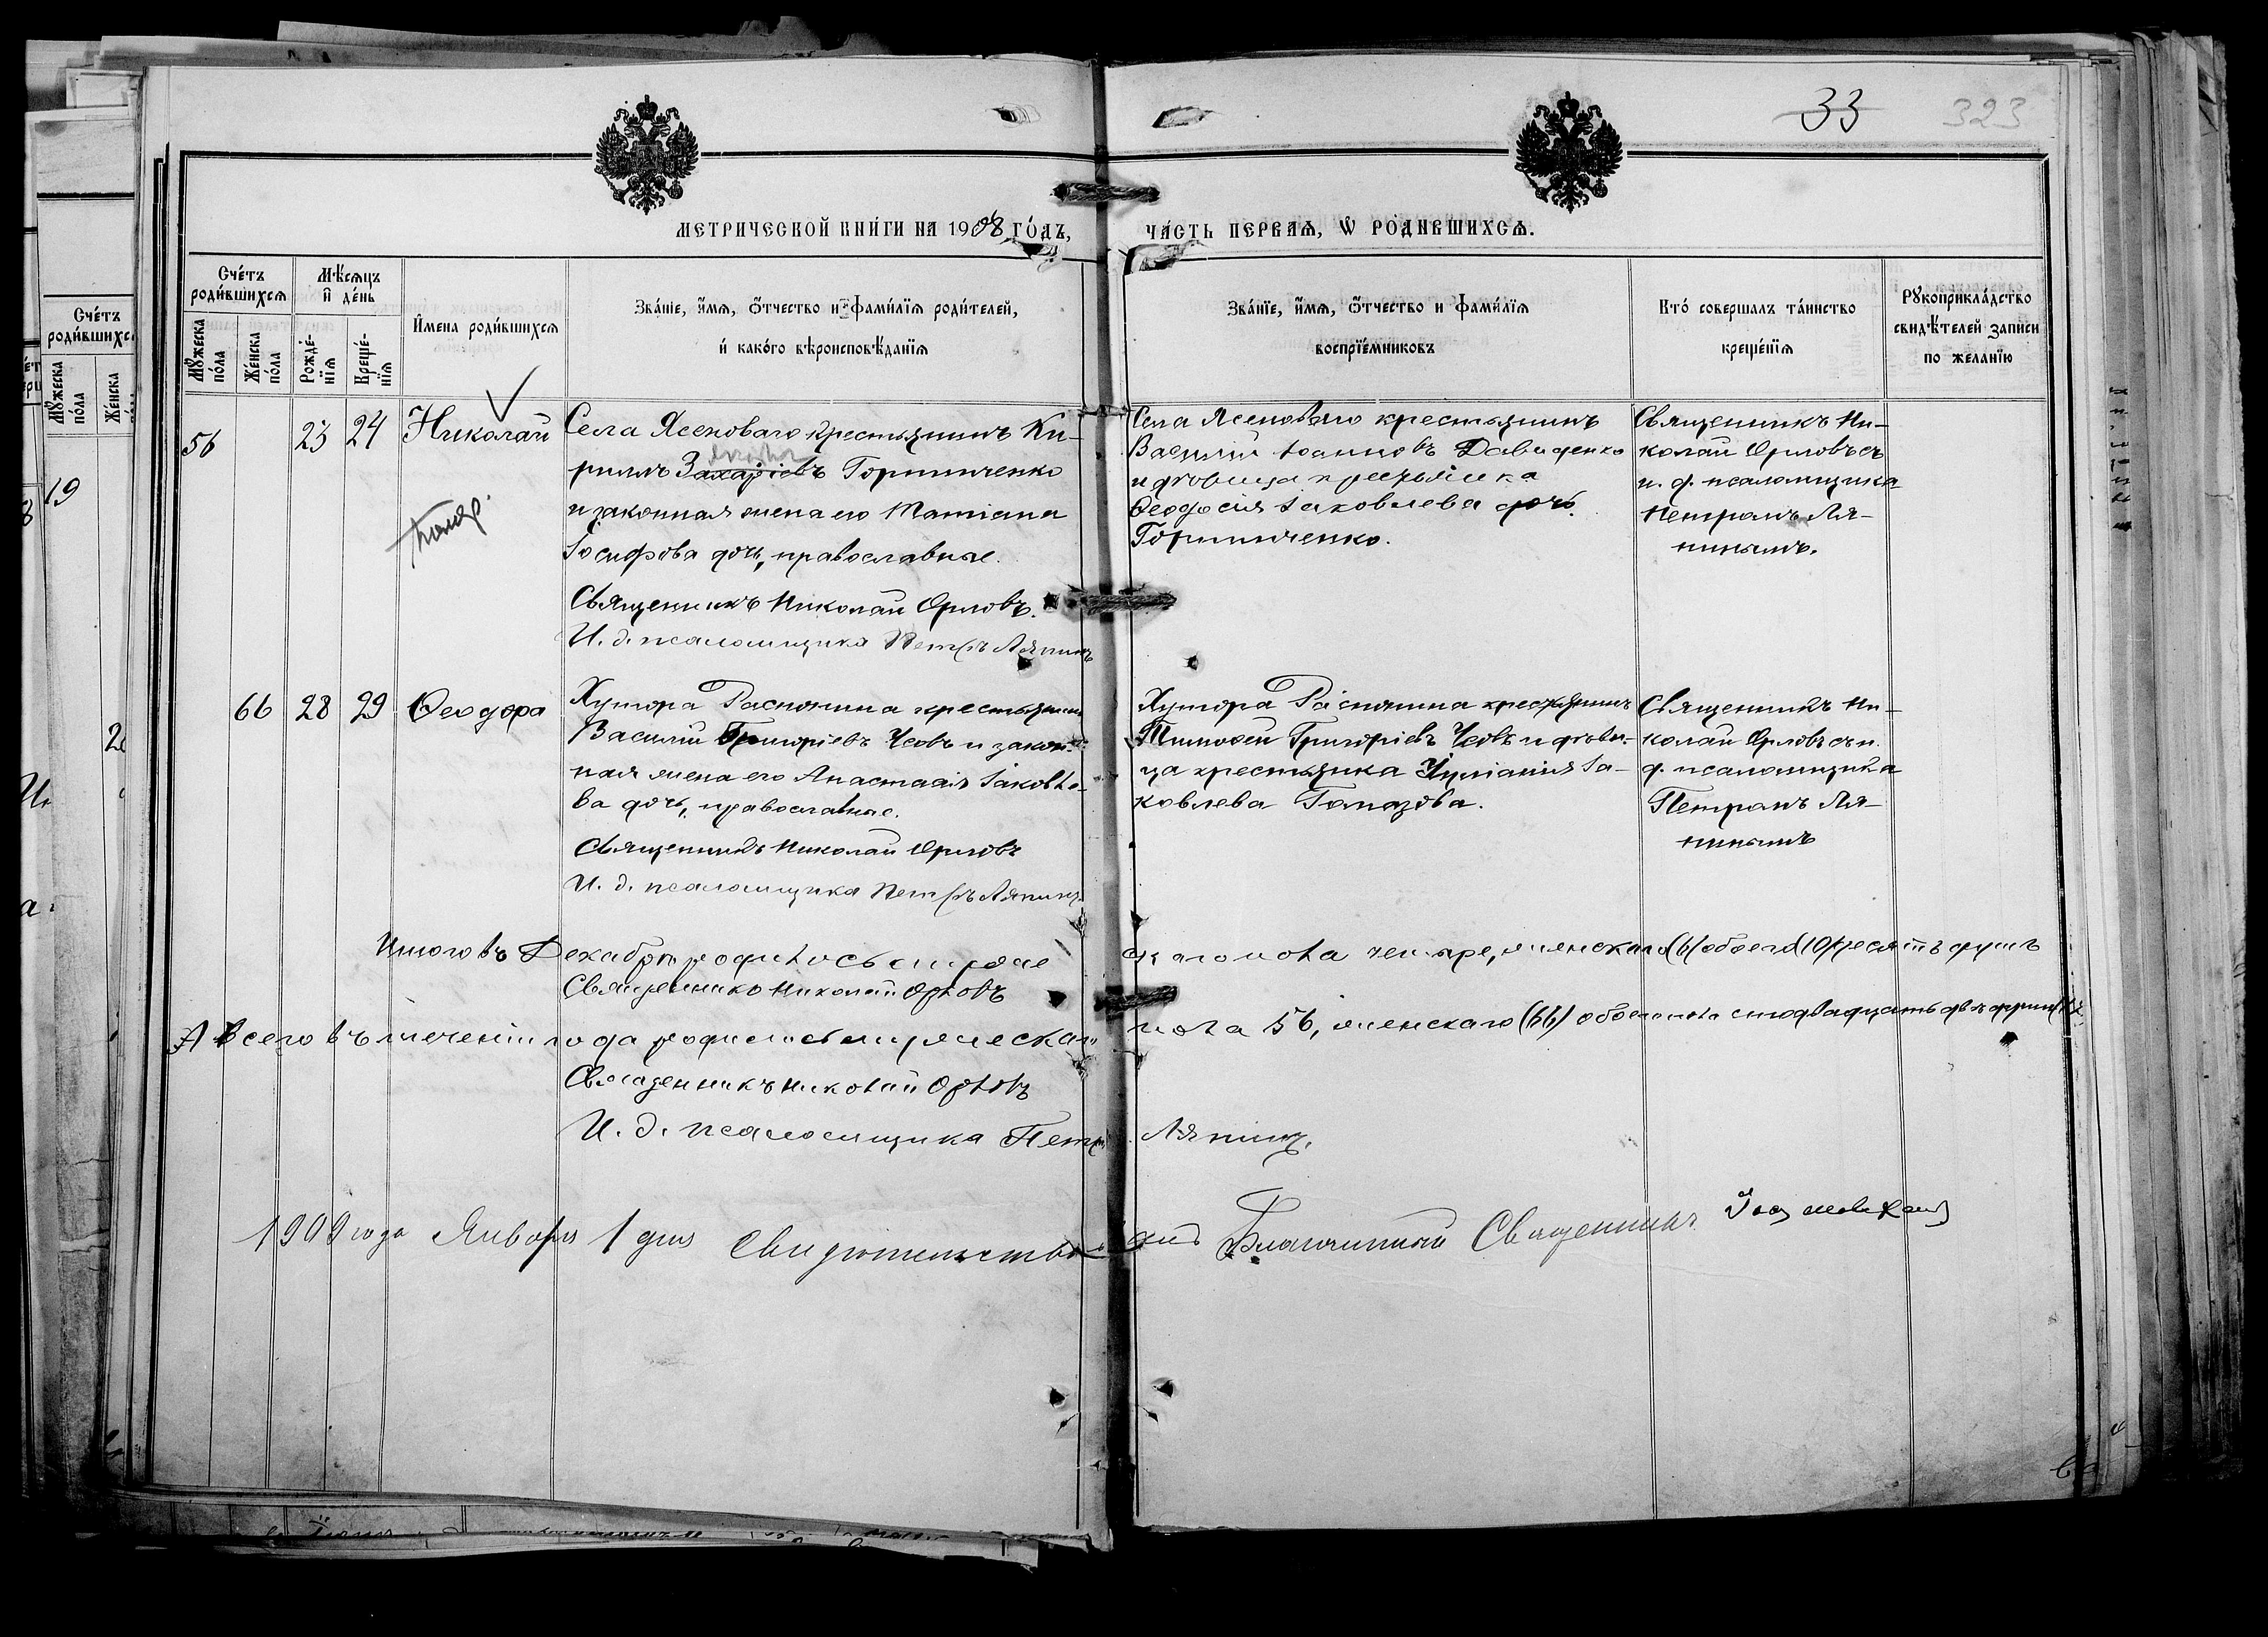 33 323
МЕТРИЧЕСКОЙ КНИ́ГИ НА 1908 ГО́ДЪ, ЧА́СТЬ ПЕРВАЯ, Ѡ РОДИ́ВШИХСЯ.
Сче́тъ роди́вшихся
Мѣ́сяцъ и҆ де́нь
И҆мена роди́вшихся
Зва́нїе, и҆́мя, ѻ҆́тчество и҆ фами́лїя роди́телей,
и҆ како́го вѣроисповѣ́данїя
Зва́нїе, и҆́мя, ѻ҆́тчество и фами́лїя
воспрїе́мниковъ
Кто́ совершалъ та́инство
креще́нїя
Рꙋкоприкла́дство
свидѣ́телей за́писи
по жела́нїю
Мꙋ́жеска по́ла
Же́нска по́ла
Рожде́нїя
Креще́нїя
56 23 24 Николай
Села Ясеноваго крестьянинъ Ки-
риллъ Захаріевъ Горпинченко
и законная жена его Татіана
Іосифова дочь, православные.
Священникъ Николай Орловъ.
И. д. псаломщика Петръ Ляпинъ
Села Ясеноваго крестьянинъ
Василій Іоанновъ Давиденко
и девица крестьянка
Ѳеодосія Іаковлева дочь
Горпинченко.
Священникъ Ни-
колай Орловъ съ
и. д. псаломщика
Петромъ Ля-
пинымъ.
66 28 29 Ѳеодора
Хутора Распопина крестьянинъ
Василій Григоріевъ Чсовъ и закон-
ная жена его Анастасія Іаковле-
ва дочь, православные.
Священникъ Николай Орловъ
И. д. псаломщика Петръ Ляпинъ
Хутора Распопина крестьянинъ
Тимоѳей Григоріевъ Чсовъ и деви-
ца крестьянка Іуліанія Іа-
ковлева
Священникъ Ни-
колай Орловъ съ и.
д. псаломщика
Петромъ Ля-
пинымъ
Итого въ Декабрѣ родилось мужескаго пола четыре, женскаго (6) обоего (10) десять душъ
Священникъ Николай Орловъ
А всего въ теченіи года родилось мужескаго пола 56, женскаго (66) обоего пола стодвадцать двѣ души
Священникъ Николай Орловъ
И. д. псаломщика Петръ Ляпинъ.
1909 года Января 1 дня Свидѣтельствовалъ Благочинный Священникъ
Сче́тъ
роди́вшихся
Мꙋ́жеска по́ла
Же́нска
19